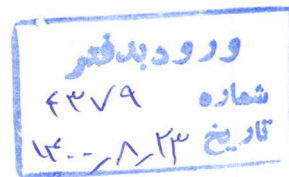 ورود بدفتر
شماره ۴۳۷۹
تاریخ ۱۴۰۰٫۸٫۲۳